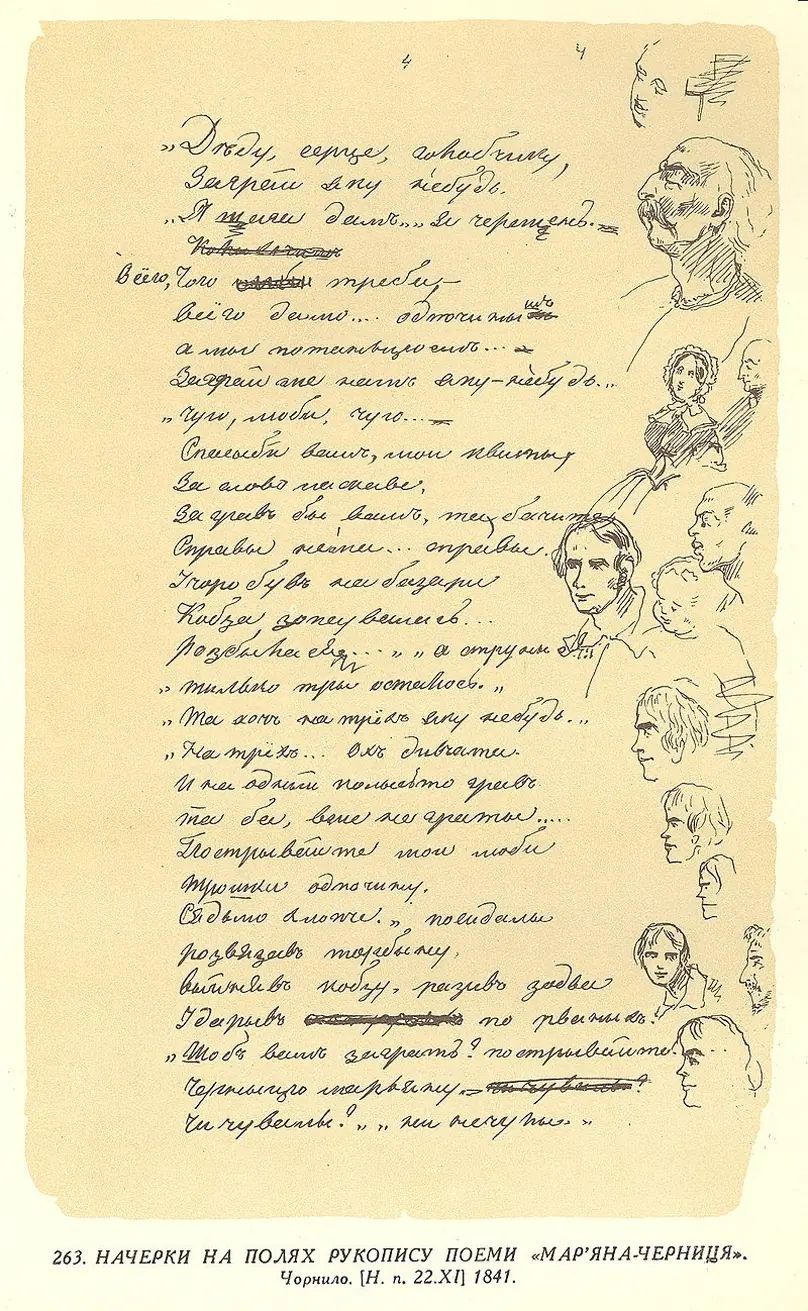 4 4
„Дѣду, серце, голобчику,
Заграй яку небудь.
„Я шага дамъ„ „я черешень.
Всёго, Чого треба,
всёго дамо... одпочинь
а мы потанцюемъ...
Заграй же намъ яку-небудь..„
„Чую, люби, чую...
Спасыби вамъ, мои квиты,
За слово ласкаве,
Загравъ бы вамъ, та, бачите,
Справы нема... справы.
Учора бувъ на базари
Кобза зопсувалась...
Розбылася... „ „а струны
„тилько тры осталось.„
„Та хочь на трёхъ яку небудь..„
„На трёхъ... Охъ дивчата
И на одний колысь-то гравъ
та ба, вже не граты.....
Пострывайте мои люби
трошки одпочину.
Сядьмо хлопче.„ посидалы
розвязавъ торбыну,
выйнявъ кобзу, разивъ зодва
Ударывъ по рваныхъ.
„Щобъ вамъ заграть? пострывайте...
Черныцю марьяну
Чи чувалы?„ „ни не чулы.„
263. НАЧЕРКИ НА ПОЛЯХ РУКОПИСУ ПОЕМИ «МАР’ЯНА-ЧЕРНИЦЯ».
Чорнило. [Н. п. 22.XI] 1841.